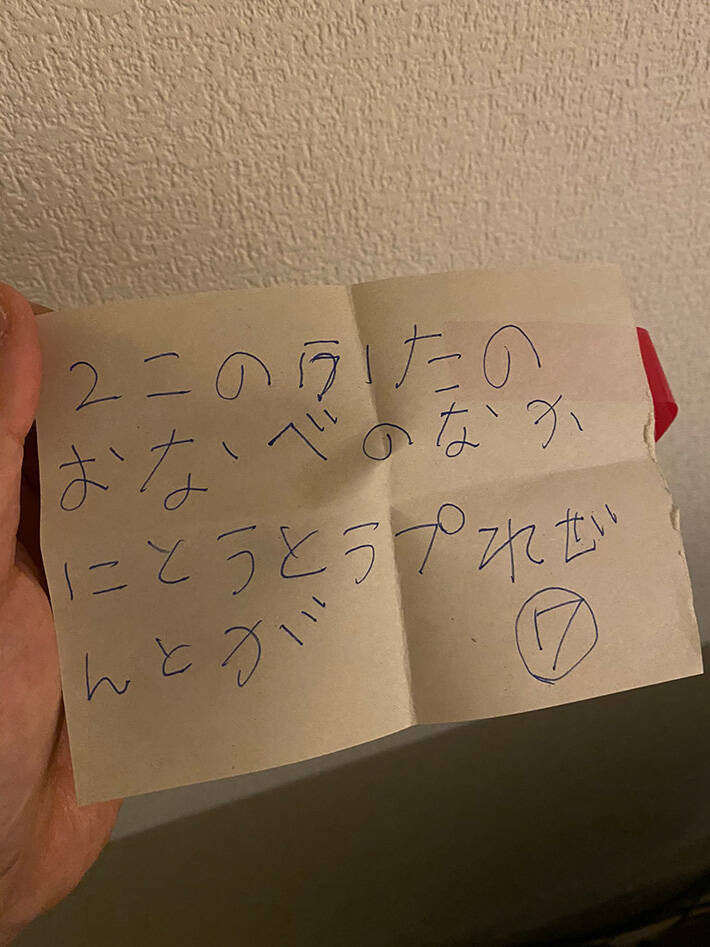 2このうけたの
おなべのなか
にとうとうプれぜ
んとが
⑦